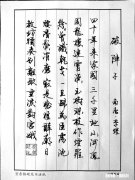 破陣子
南唐 李煜
四十年來家國三千里地山河
鳳閣龍樓連霄漢玉樹瓊枝作煙蘿
幾曾識干戈一旦歸為臣虜沈
腰潘鬢消磨最是倉皇辭廟日
教坊猶奏別離歌垂淚對宮娥